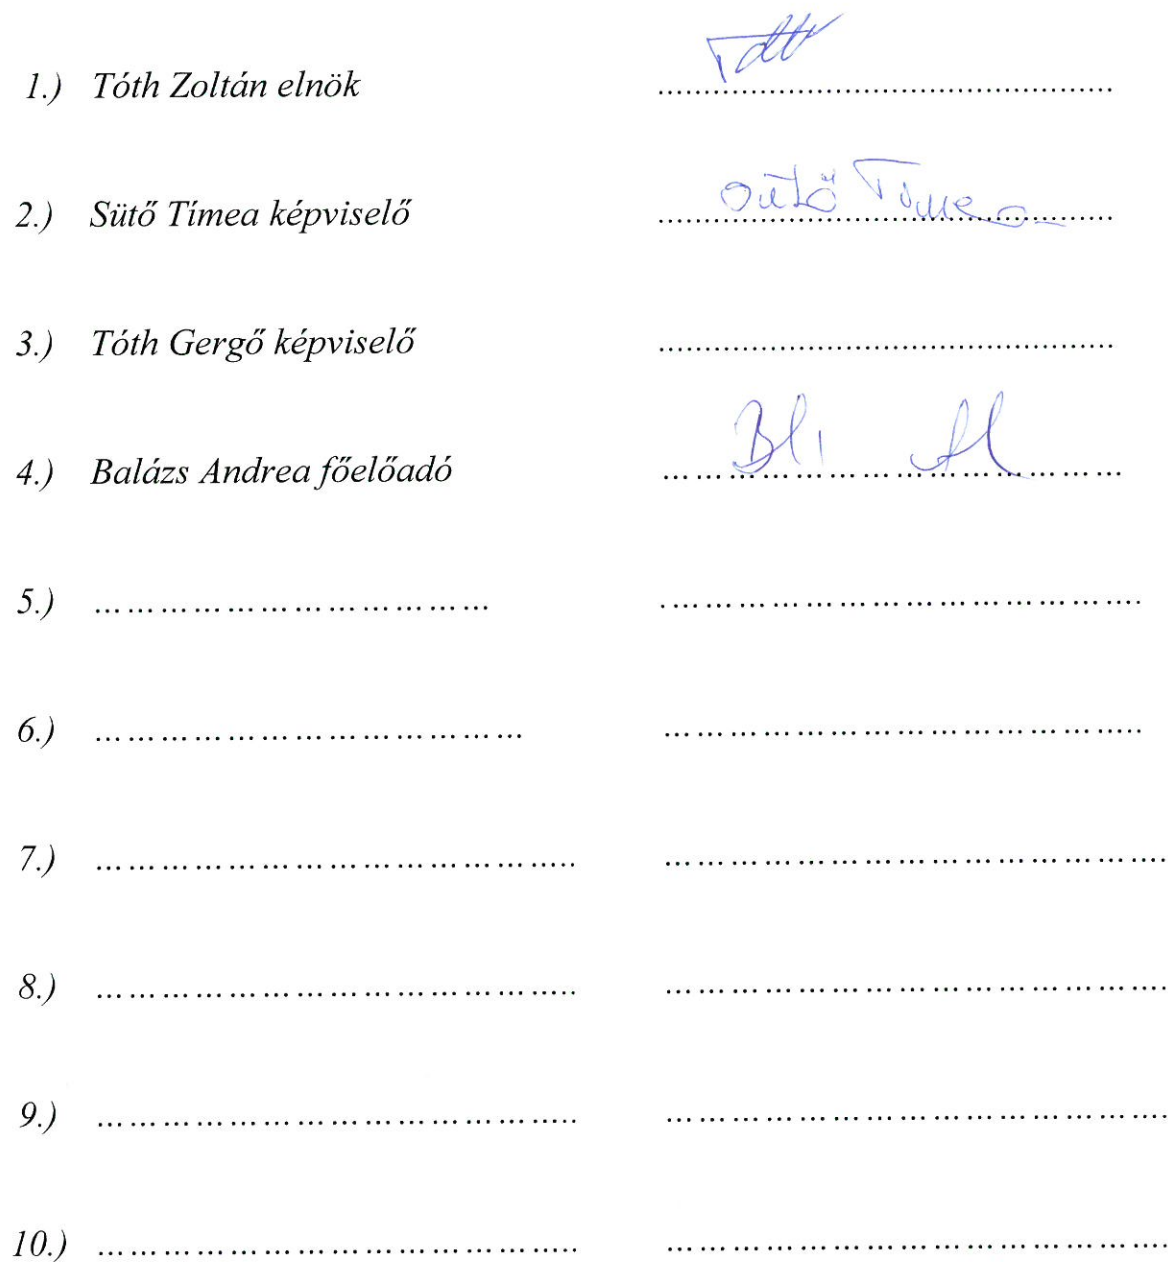 1.) Tóth Zoltán elnök ..............................................
2.) Sütő Tímea képviselő Sütő Tímea
3.) Tóth Gergő képviselő ..............................................
4.) Balázs Andrea főelőadó ..............................................
5.) .................................... ..............................................
6.) .................................... ..............................................
7.) .................................... ..............................................
8.) .................................... ..............................................
9.) .................................... ..............................................
10.) .................................... ..............................................